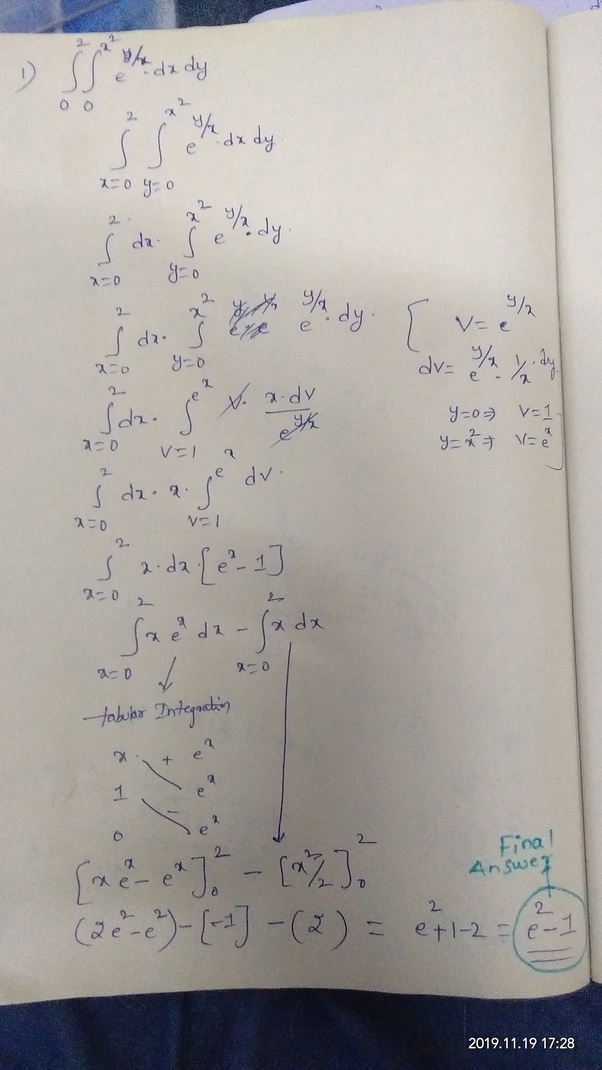 1) ∫₀² ∫₀^{x²} e^{y/x} · dx dy
∫_{x=0}^{2} ∫_{y=0}^{x²} e^{y/x} · dx dy
∫_{x=0}^{2} dx · ∫_{y=0}^{x²} e^{y/x} · dy
∫_{x=0}^{2} dx · ∫_{y=0}^{x²} e^{y/x} · dy
V = e^{y/x}
dv = e^{y/x} · 1/x · dy
y=0 ⇒ V=1
y=x² ⇒ V=e^x
∫_{x=0}^{2} dx · ∫_{V=1}^{e^x} x·dv / e^{y/x}
∫_{x=0}^{2} dx · x · ∫_{V=1}^{e^x} dv ·
∫_{x=0}^{2} x · dx · [e^x - 1]
∫_{x=0}^{2} x e^x dx - ∫_{x=0}^{2} x dx
tabular Integration
x + e^x
1 - e^x
0 e^x
[x e^x - e^x]₀² - [x²/2]₀²
Final
Answer
(2e² - e²) - [-1] - (2) = e² + 1 - 2 = e² - 1
2019.11.19 17:28